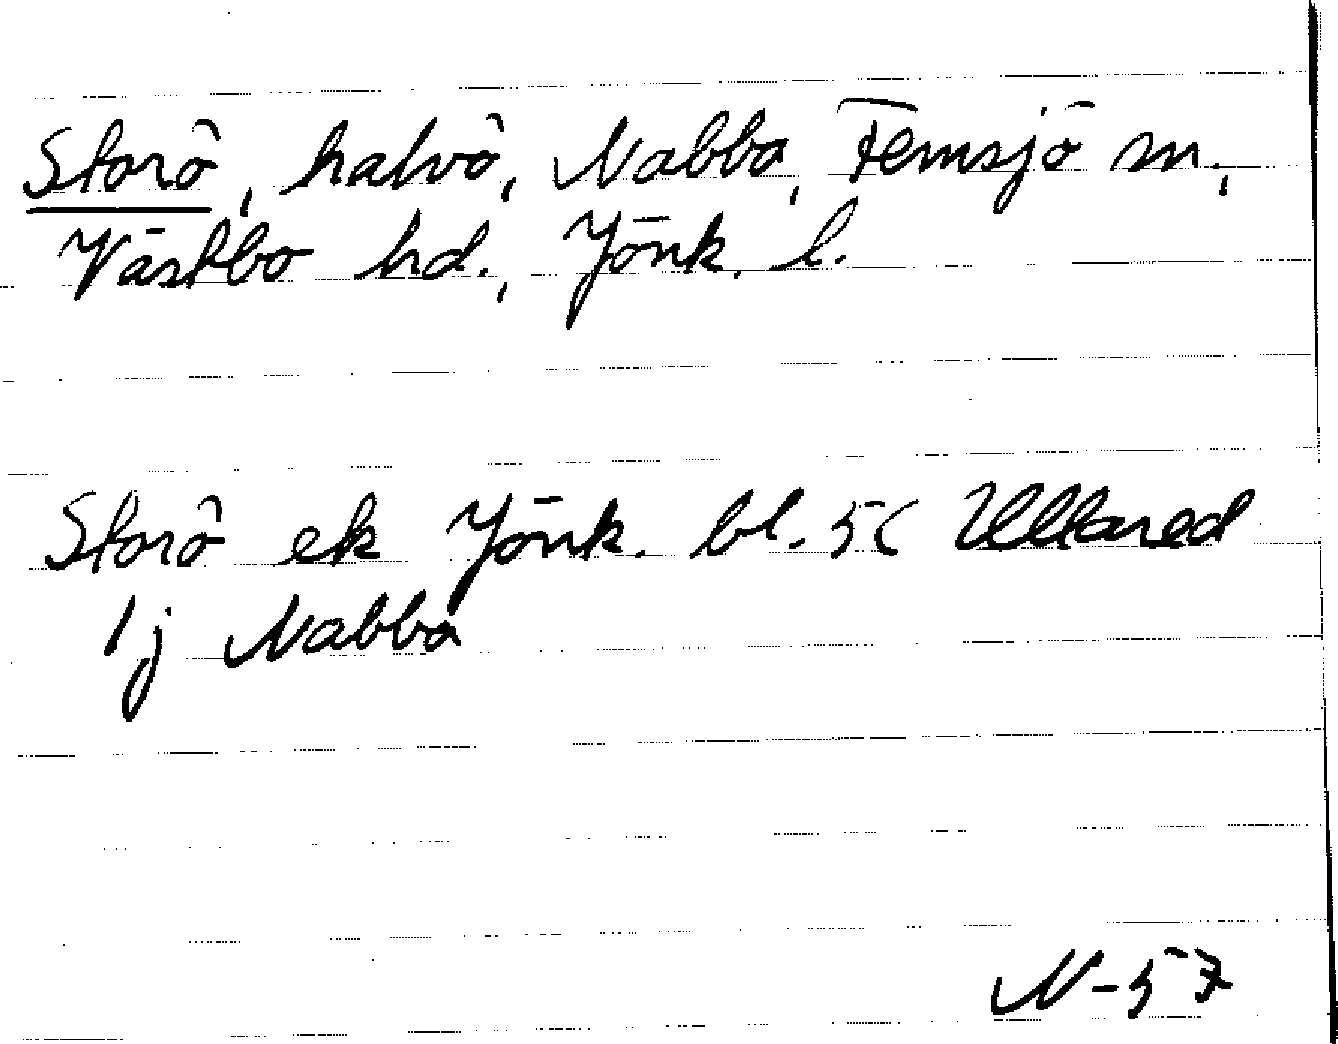 Storö, halvö, Nabba, Femsjö sn,
Västbo hd., Jönk. l.
Storö ek Jönk. bl. 56 Ullared
1j Nabba
N-57